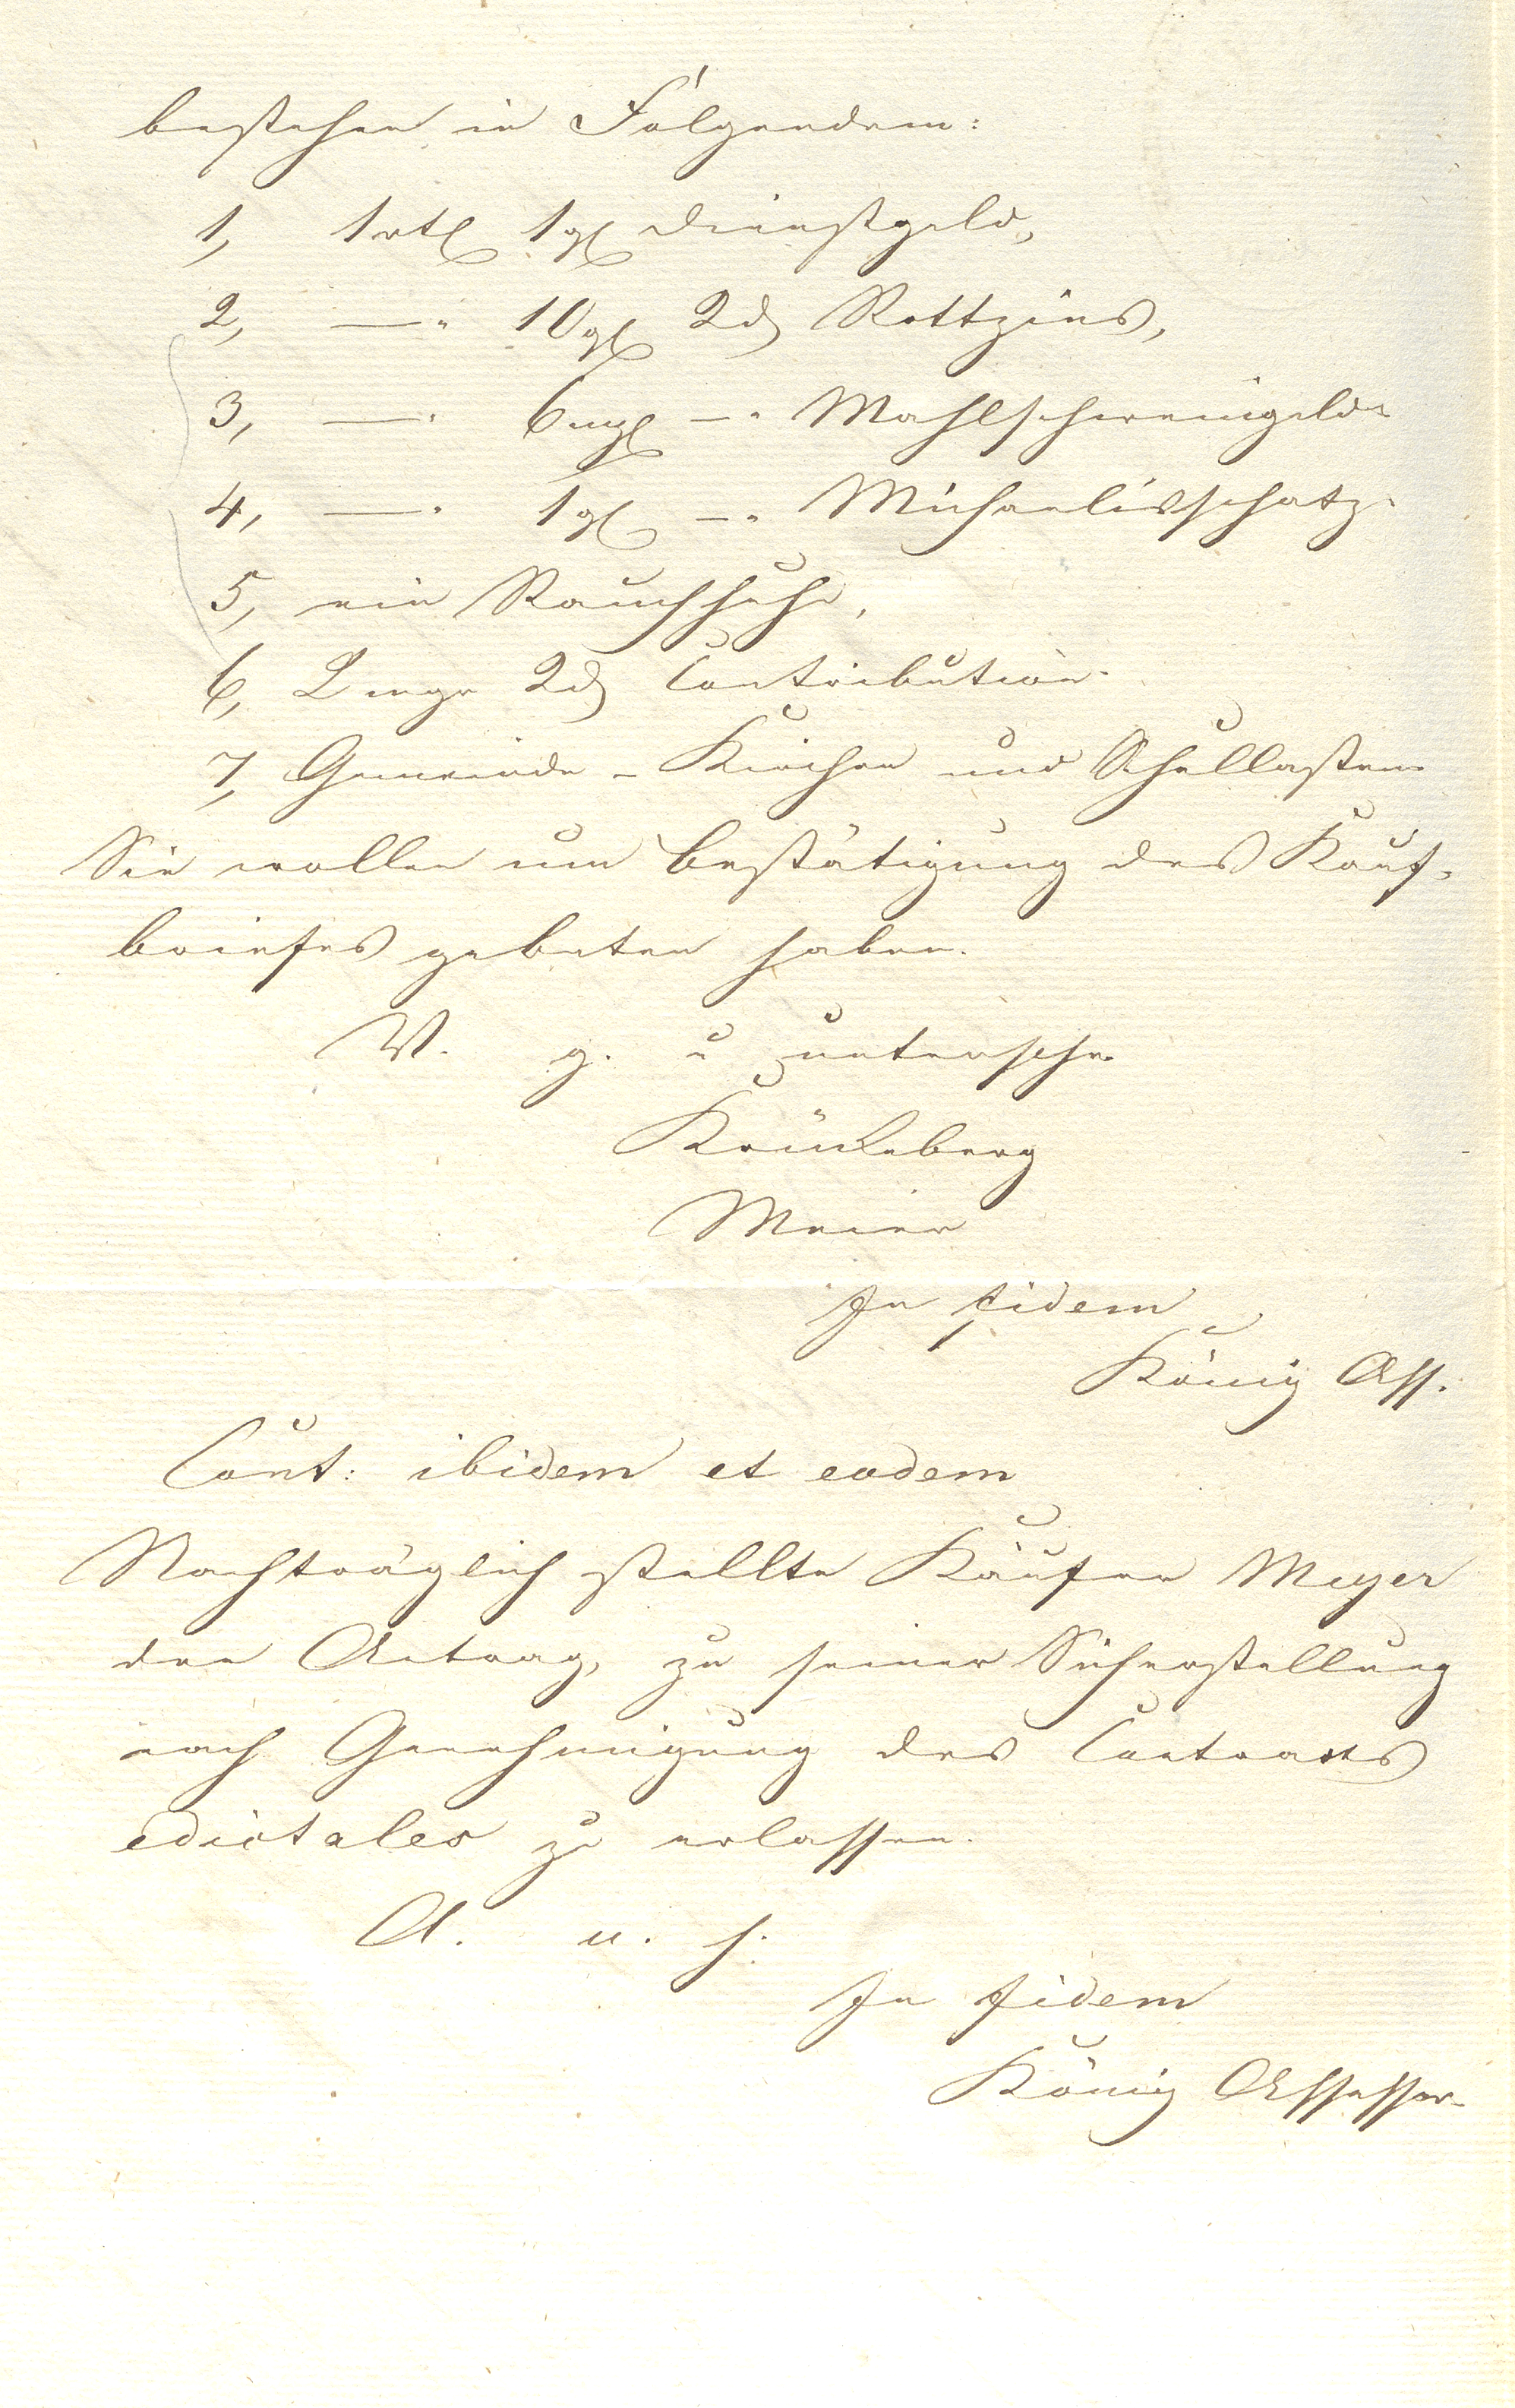 bestehen in Folgendem:
1, 1 rtl 1 gl Dienstgeld,
2, —„ 10 gl 2 d Rottzins,
3, —„ 6 mgl —„ Mahlschweingeld
4, —„ 1 gl —„ Michaelisschatz.
5, ein Rauchhuhn,
6, 2 mgr 2 d Contribution.
7, Gemeinde- Kirchen und Schullasten
Sie wollen um Bestätigung des Kauf-
briefes gebeten haben.
V. g. u unterschr.
Krückeberg
Meier
In fidem
König Ass.
Cont: ibidem et eodem
Nachträglich stellte Käufer Meyer
den Antrag, zu seiner Sicherstellung
nach Genehmigung des Contracts
edictales zu erlassen.
A. u. s.
In fidem
König Assessor.